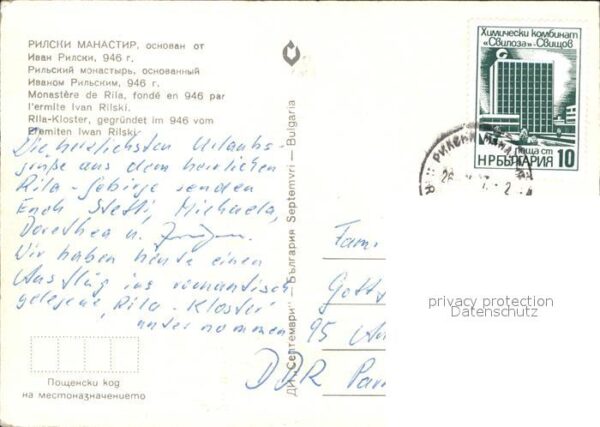 РИЛСКИ МАНАСТИР, основан от
Иван Рилски, 946 г.
Рильский монастырь, основанный
Иваном Рильским, 946 г.
Monastère de Rila, fondé en 946 par
l'ermite Ivan Rilski.
Rila-Kloster, gegründet im 946 vom
Eremiten Iwan Rilski
Die herzlichsten Urlaubs-
grüße aus dem herrlichen
Rila-Gebirge senden
Euch Steffi, Michaela,
Dorothea u.
Wir haben heute einen
Ausflug ins romantisch
gelegene Rila-Kloster
unternommen
Пощенски код
на местоназначението
ДИ „Септември" — България Septemvri — Bulgaria
Химически комбинат
„Свилоза"-Свищов
поща ст
НР БЪЛГАРИЯ 10
Fam.
95
DDR
privacy protection
Datenschutz